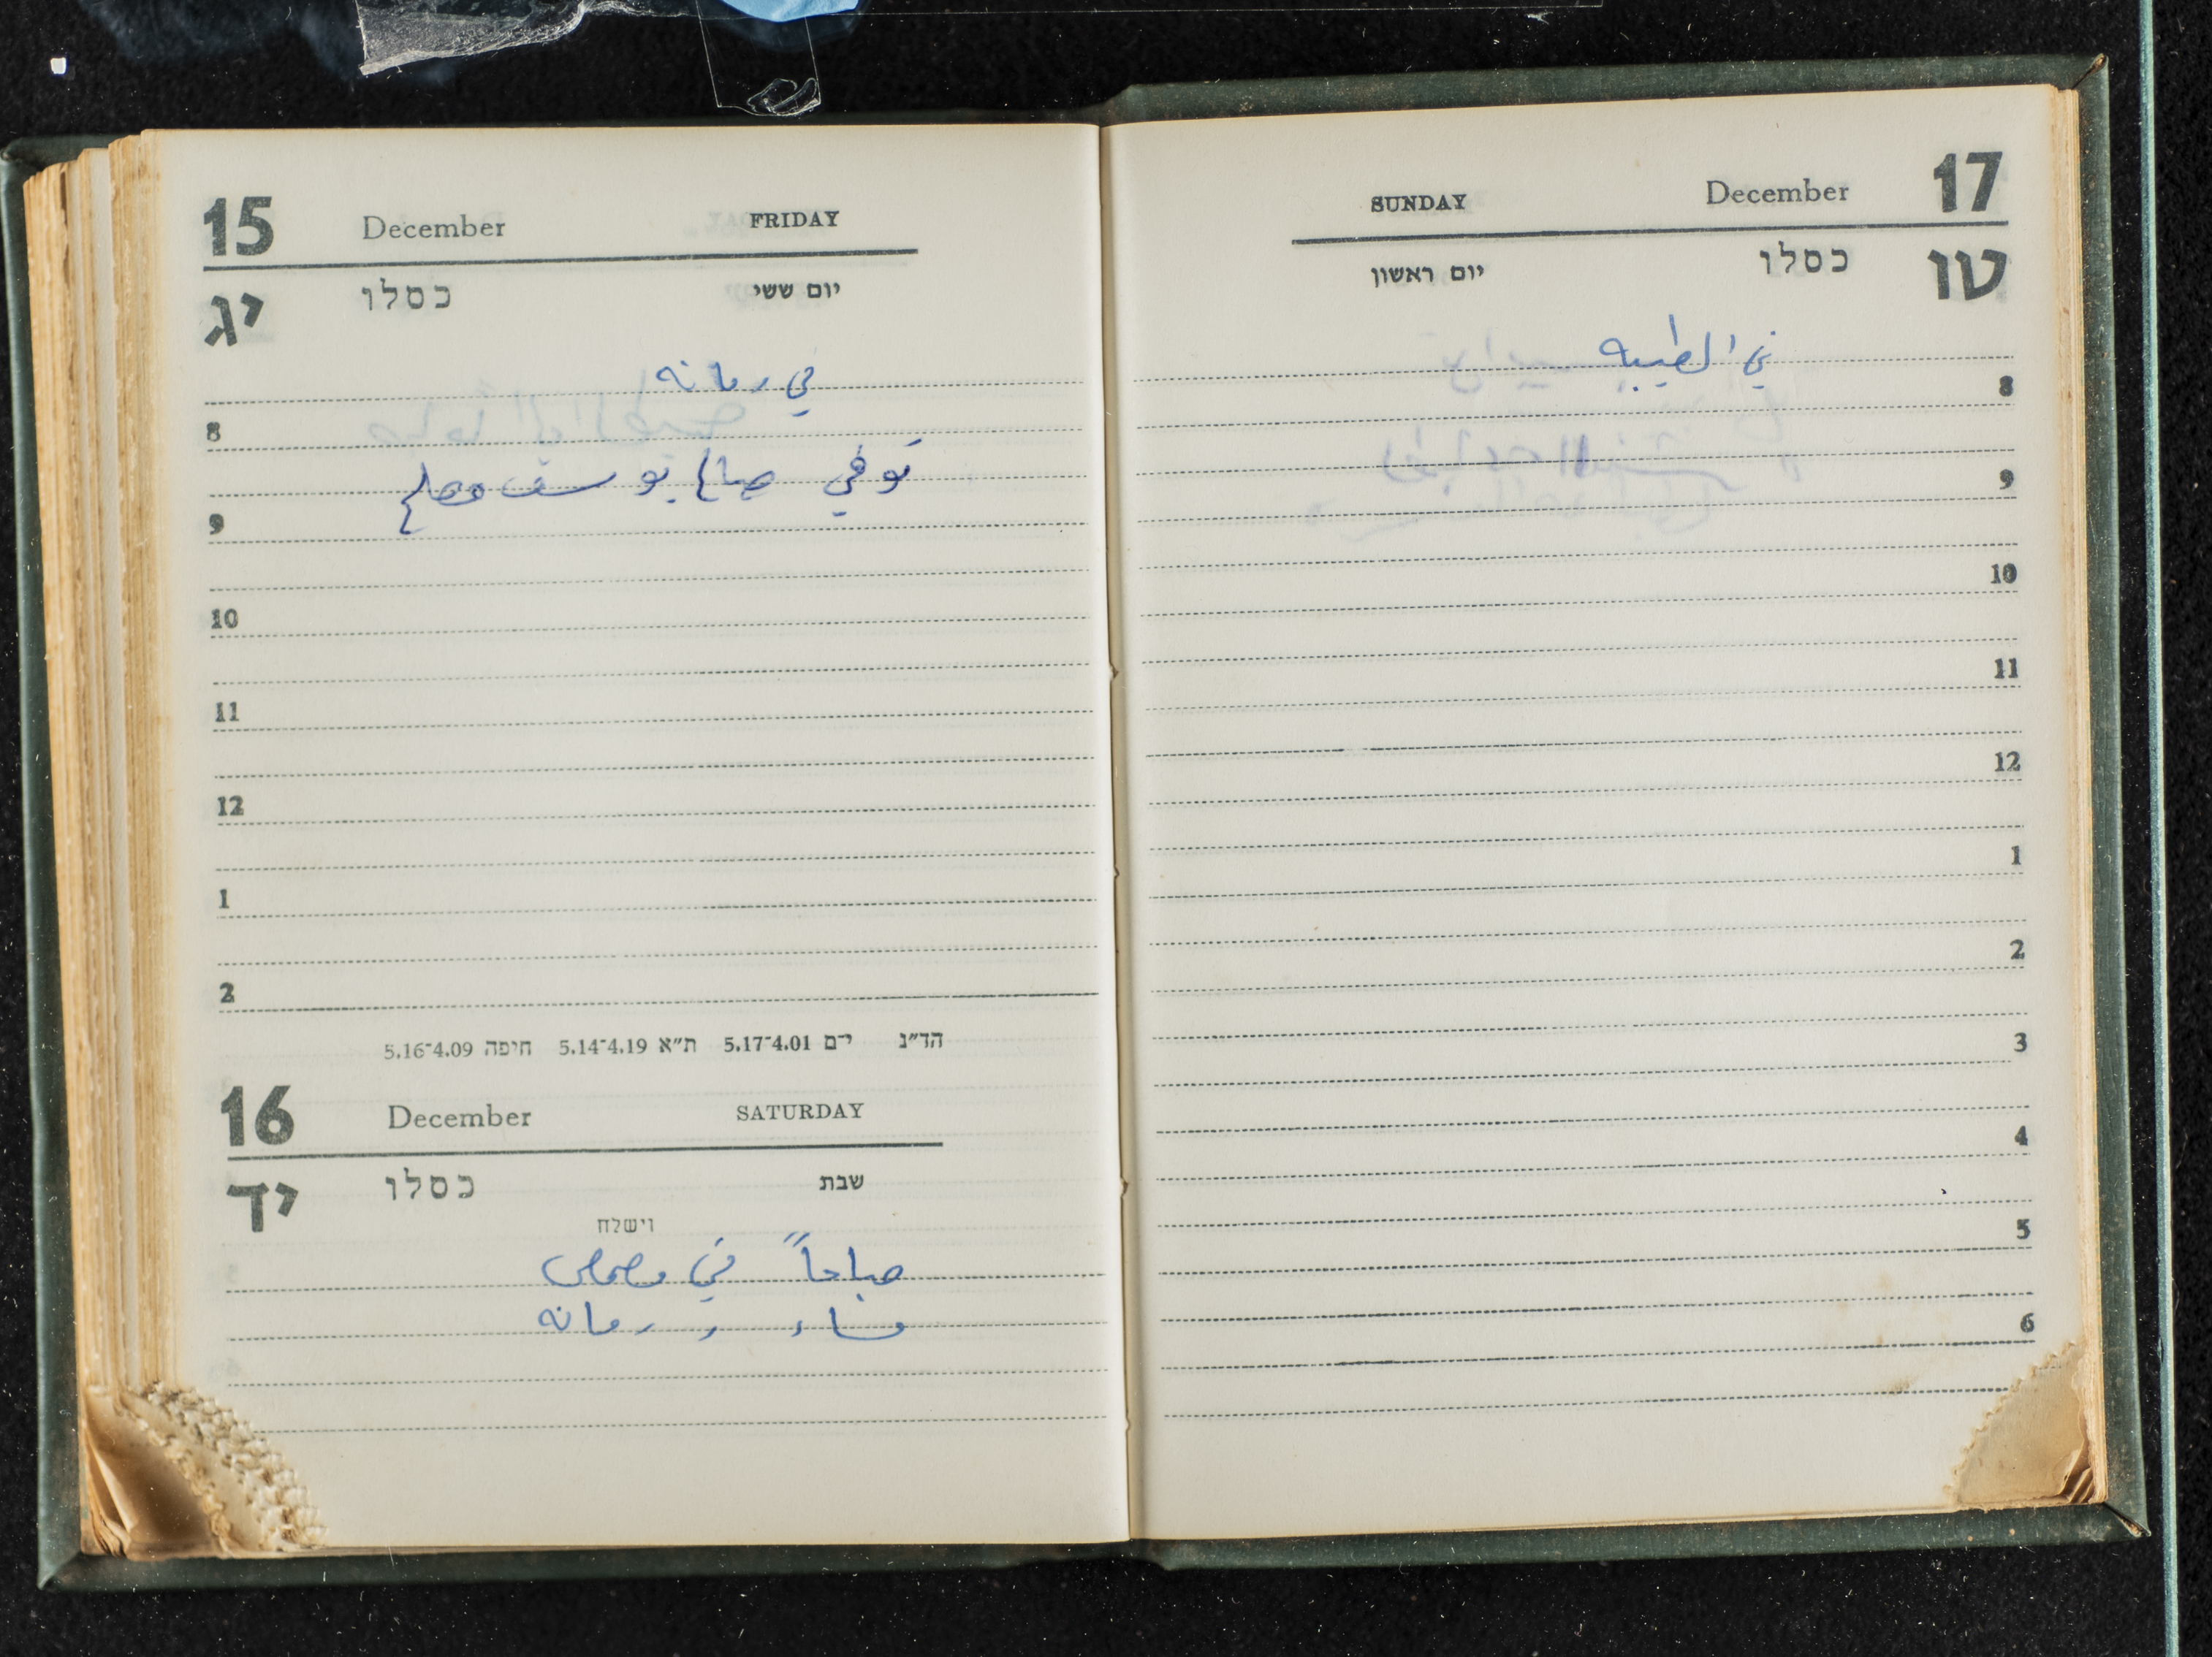 15 December FRIDAY
יג כסלו יום ששי
في رمانه
8
توفي صالح يوسف مصلح
9
10
11
12
1
2
הד״נ י־ם 4.01־5.17 ת״א 4.19־5.14 חיפה 4.09־5.16
16 December SATURDAY
יד כסלו שבת
וישלח
صباحاً في مصمص
مساء ,, رمانه
SUNDAY December 17
יום ראשון כסלו טו
في الطيبه
8
9
10
11
12
1
2
3
4
5
6